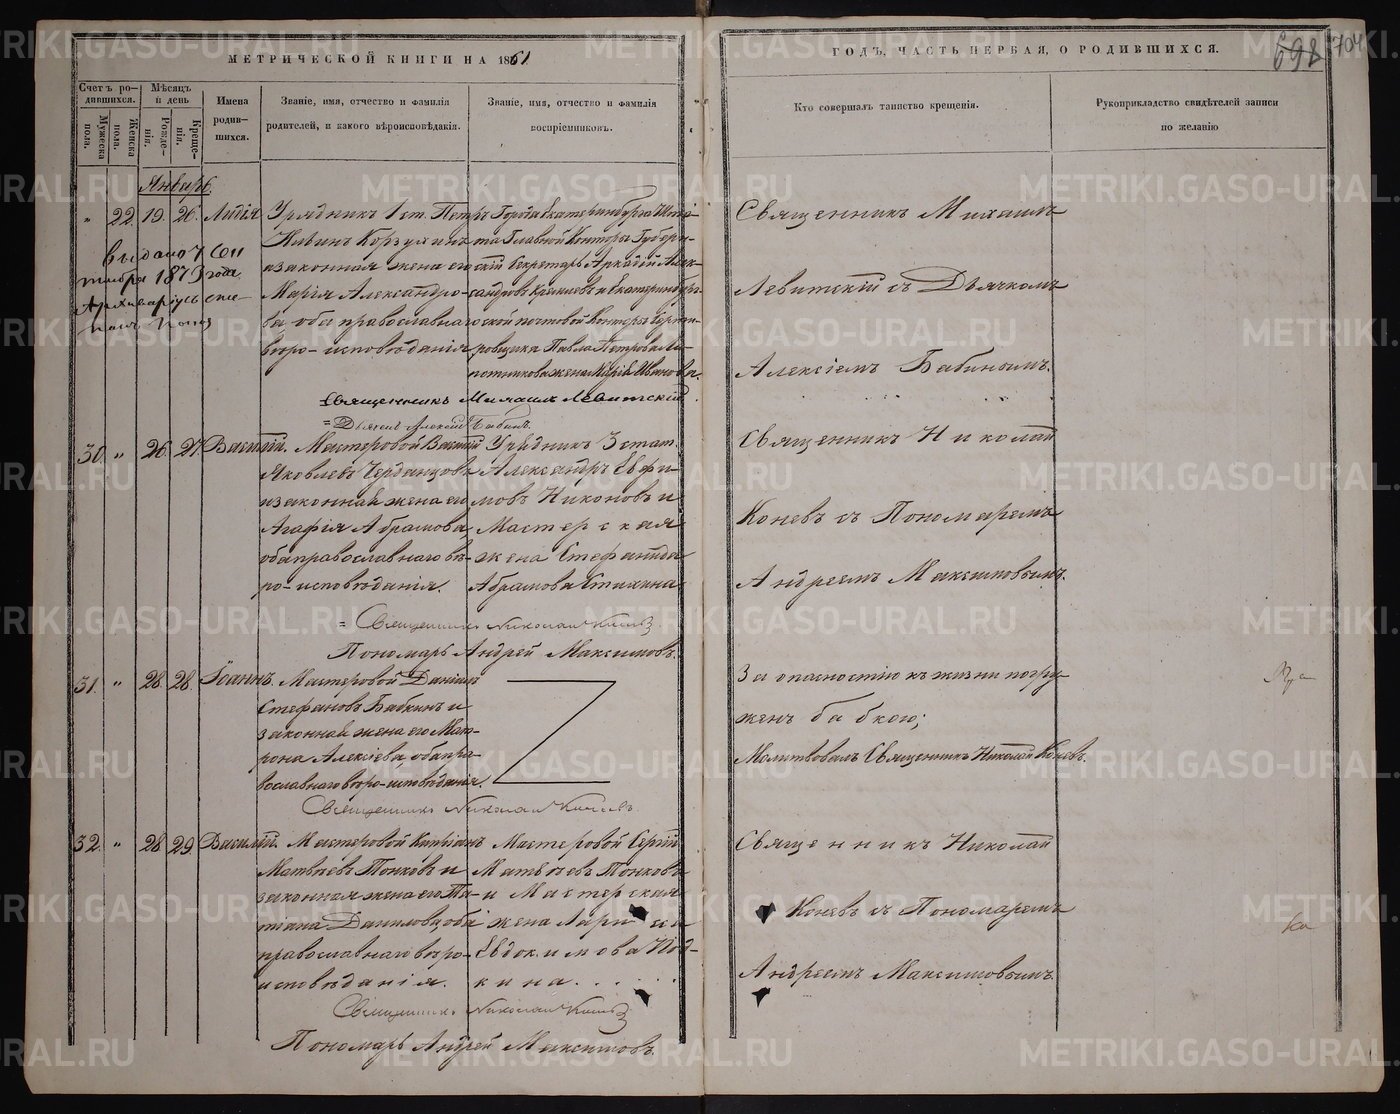 МЕТРИЧЕСКОЙ КНИГИ НА 1861
ГОДЪ, ЧАСТЬ ПЕРВАЯ, О РОДИВШИХСЯ.
698 704
Счетъ родившихся.
Мужеска пола.
Женска пола.
Мѣсяцъ и день
Рожденія.
Крещенія.
Имена
родив-
шихся.
Званіе, имя, отчество и фамилія
родителей, и какого вѣроисповѣданія.
Званіе, имя, отчество и фамилія
воспріемниковъ.
Кто совершалъ таинство крещенія.
Рукоприкладство свидѣтелей записи
по желанію
Январь.
" 22. 19. 26. Лидія
Урядникъ 1 ст. Петръ
Корзухинъ
и законная жена его
Марія Александро-
ва оба православнаго
вѣро-исповѣданія
Города Екатеринбурга
та Главной Конторы Губерн-
скій Секретарь Аркадій Алек-
сандровъ и Екатеринбург-
ской почтовой Конторы Сорти-
ровщика Павла Петрова
жена Марія Иванова.
выдано 7 Сен
тября 1873 года
Священникъ Михаилъ Левитскій.
Дьячекъ Алексій Бабинъ.
Священникъ Михаилъ
Левитскій съ Дьячкомъ
Алексіемъ Бабинымъ.
30. " 26. 27. Василій.
Мастеровой Василій
Яковлевъ Черданцовъ
и законная жена его
Агафія Абрамова,
оба православнаго вѣ-
ро-исповѣданія.
Урядникъ 3 стат.
Александръ Евфи-
мовъ Никоновъ и
Мастерская
жена Стефанида
Абрамова Стихина
Священникъ Николай Коневъ
Пономарь Андрей Максимовъ.
Священникъ Николай
Коневъ съ Пономаремъ
Андреемъ Максимовымъ.
31. " 28. 28. Іоаннъ.
Мастеровой Даніилъ
Стефановъ Бабкинъ и
законная жена его Мат-
рона Алексіева, оба пра-
вославнаго вѣро-исповѣданія.
Священникъ Николай Коневъ.
За опасностію къ жизни погру-
женъ бабкою;
Молитвовалъ Священникъ Николай Коневъ.
32. " 28. 29. Василій.
Мастеровой Кипріанъ
Матвѣевъ Понковъ и
законная жена его Та-
тіана Данилова, оба
православнаго вѣро-
исповѣданія.
Мастеровой Сергій
Матвѣевъ Понковъ
и Мастерская
жена
Евдокимова
кина.
Священникъ Николай Коневъ
Пономарь Андрей Максимовъ.
Священникъ Николай
Коневъ съ Пономаремъ
Андреемъ Максимовымъ.
METRIKI.GASO-URAL.RU